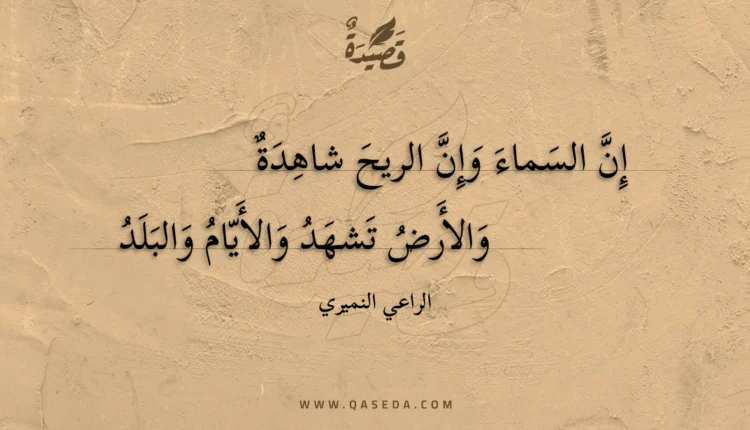 قَصِيدَةٌ
إِنَّ السَماءَ وَإِنَّ الريحَ شاهِدَةٌ
وَالأَرضُ تَشهَدُ وَالأَيّامُ وَالبَلَدُ
الراعي النميري
WWW.QASEDA.COM